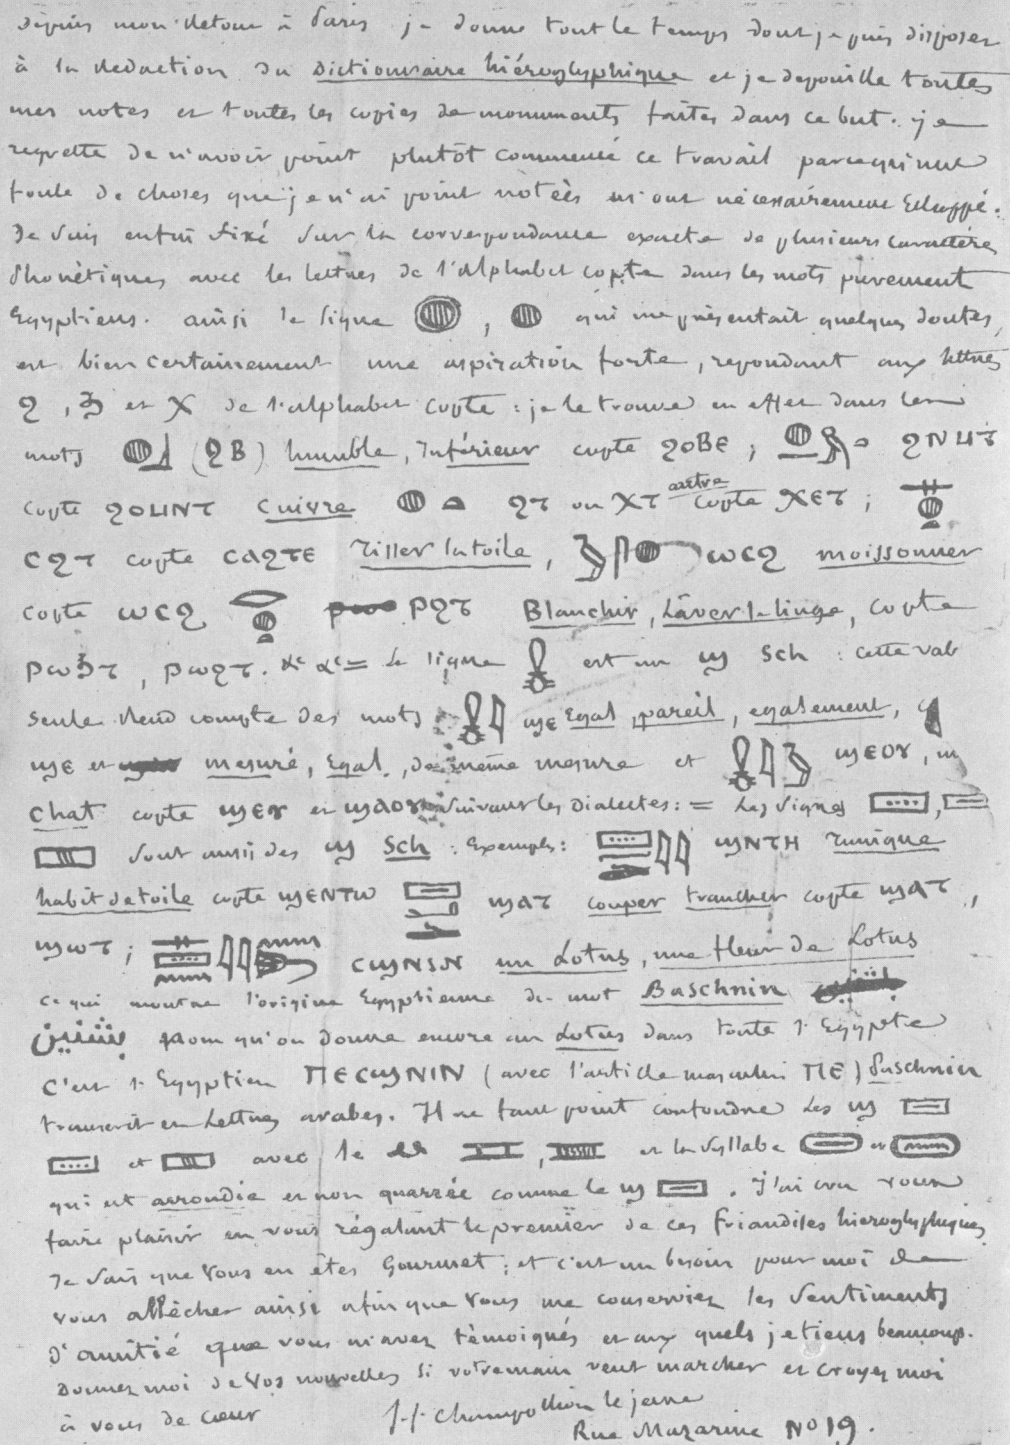 Depuis mon retour à Paris je donne tout le temps dont je puis disposer
à la redaction du dictionnaire hiéroglyphique et je depouille toutes
mes notes et toutes les copies de monuments faites dans ce but. je
regrette de n'avoir point plutôt commencé ce travail parcequ'une
foule de choses que je n'ai point notées m'ont nécessairement Echappé.
Je suis enfin fixé sur la correspondance exacte de plusieurs caractères
Phonétiques avec les lettres de l'alphabet copte dans les mots purement
Egyptiens. ainsi le signe 𓐍, 𓐍 qui me présentait quelques doutes,
est bien certainement une aspiration forte, repondant aux lettres
ϩ, ϧ et ⲭ de l'alphabet copte : je le trouve en effet dans les
mots (ϩⲃ) humble, Inférieur copte ϩⲟⲃⲉ ;
copte ϩⲟⲙⲛⲧ cuivre ϩⲧ ou ⲭⲧ autre copte ⲭⲉⲧ ;
ⲥϩⲧ copte ⲥⲁϩⲧⲉ tisser la toile, ⲱⲥϩ moissonner
copte ⲱⲥϩ ⲣϩⲧ Blanchir, Laver le linge, copte
ⲣⲱϧⲧ, ⲣⲱϩⲧ. &c &c = Le signe 𓆼 est un ϣ sch : cette val
seule rend compte des mots ϣⲉ Egal, pareil, egalement,
ϣⲉ et mesuré, Egal, de même mesure et ϣⲉⲟⲩ, un
chat copte et suivant les dialectes : = Les signes 𓈙, 𓈙
𓈙 sont aussi des ϣ Sch : Exemples : ϣⲛⲧⲏ tunique
habit de toile copte ϣⲉⲛⲧⲱ ϣⲁⲧ couper trancher copte ϣⲁⲧ,
ϣⲱⲧ ; ⲥϣⲛⲓⲛ un Lotus, une fleur de Lotus
ce qui montre l'origine Egyptienne du mot Baschnin
بشنين nom qu'on donne encore au Lotus dans toute l'Egypte
C'est l'Egyptien ⲡⲉⲥϣⲛⲓⲛ (avec l'article masculin ⲡⲉ) Paschnin
transcrit en Lettres arabes. Il ne faut point confondre les ϣ 𓈙
𓈙 et 𓈙 avec le et la syllabe et
qui est arrondie et non quarrée comme le ϣ 𓈙. J'ai cru vous
faire plaisir en vous régalant le premier de ces friandises hieroglyphiques
Je sais que Vous en êtes Gourmet ; et c'est un besoin pour moi de
vous allécher ainsi afin que Vous me conserviez les sentiments
d'amitié que vous m'avez témoignés et aux quels je tiens beaucoup.
Donnez moi de Vos nouvelles si votre main veut marcher et croyez moi
à vous de cœur J.f. Champollion le jeune
Rue Mazarine No 19.